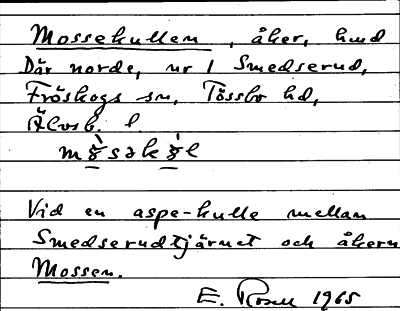 Mossekullen, åker, hmd
Där norde, nr 1 Smedserud,
Fröskogs sn, Tössbo hd,
Älvsb. l.
Vid en aspe-kulle mellan
Smedserudtjärnet och åkern
Mossen.
E. Rosen 1965